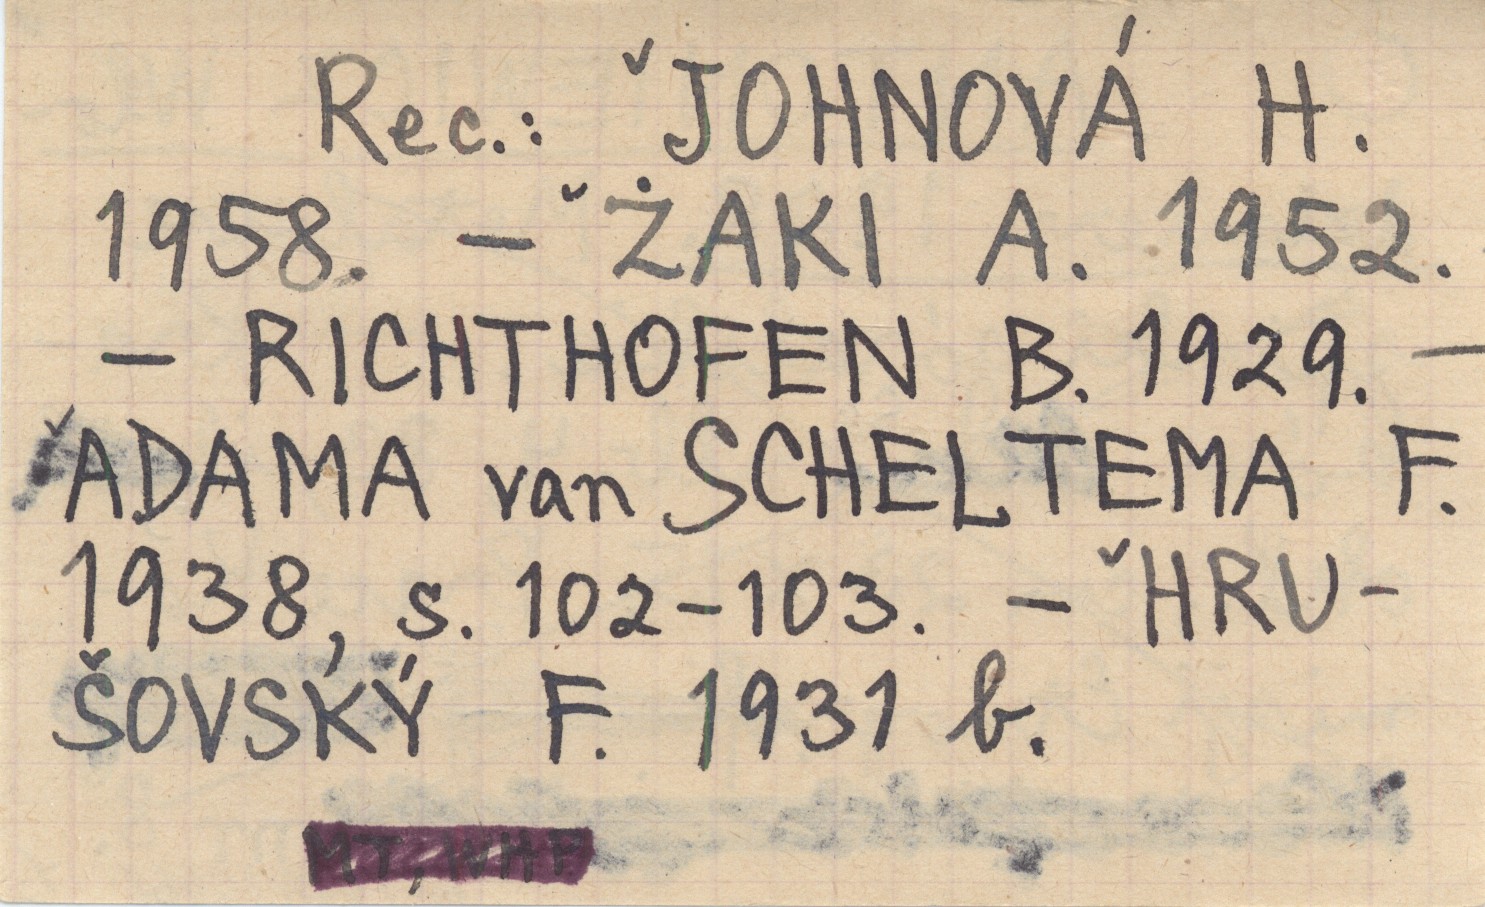 Rec.: ˇJOHNOVÁ H.
1958. — ˇŻAKI A. 1952.
— RICHTHOFEN B. 1929. —
ˇADAMA van SCHELTEMA F.
1938, s. 102-103. — ˇHRU-
ŠOVSKÝ F. 1931 b.
MT, WHF